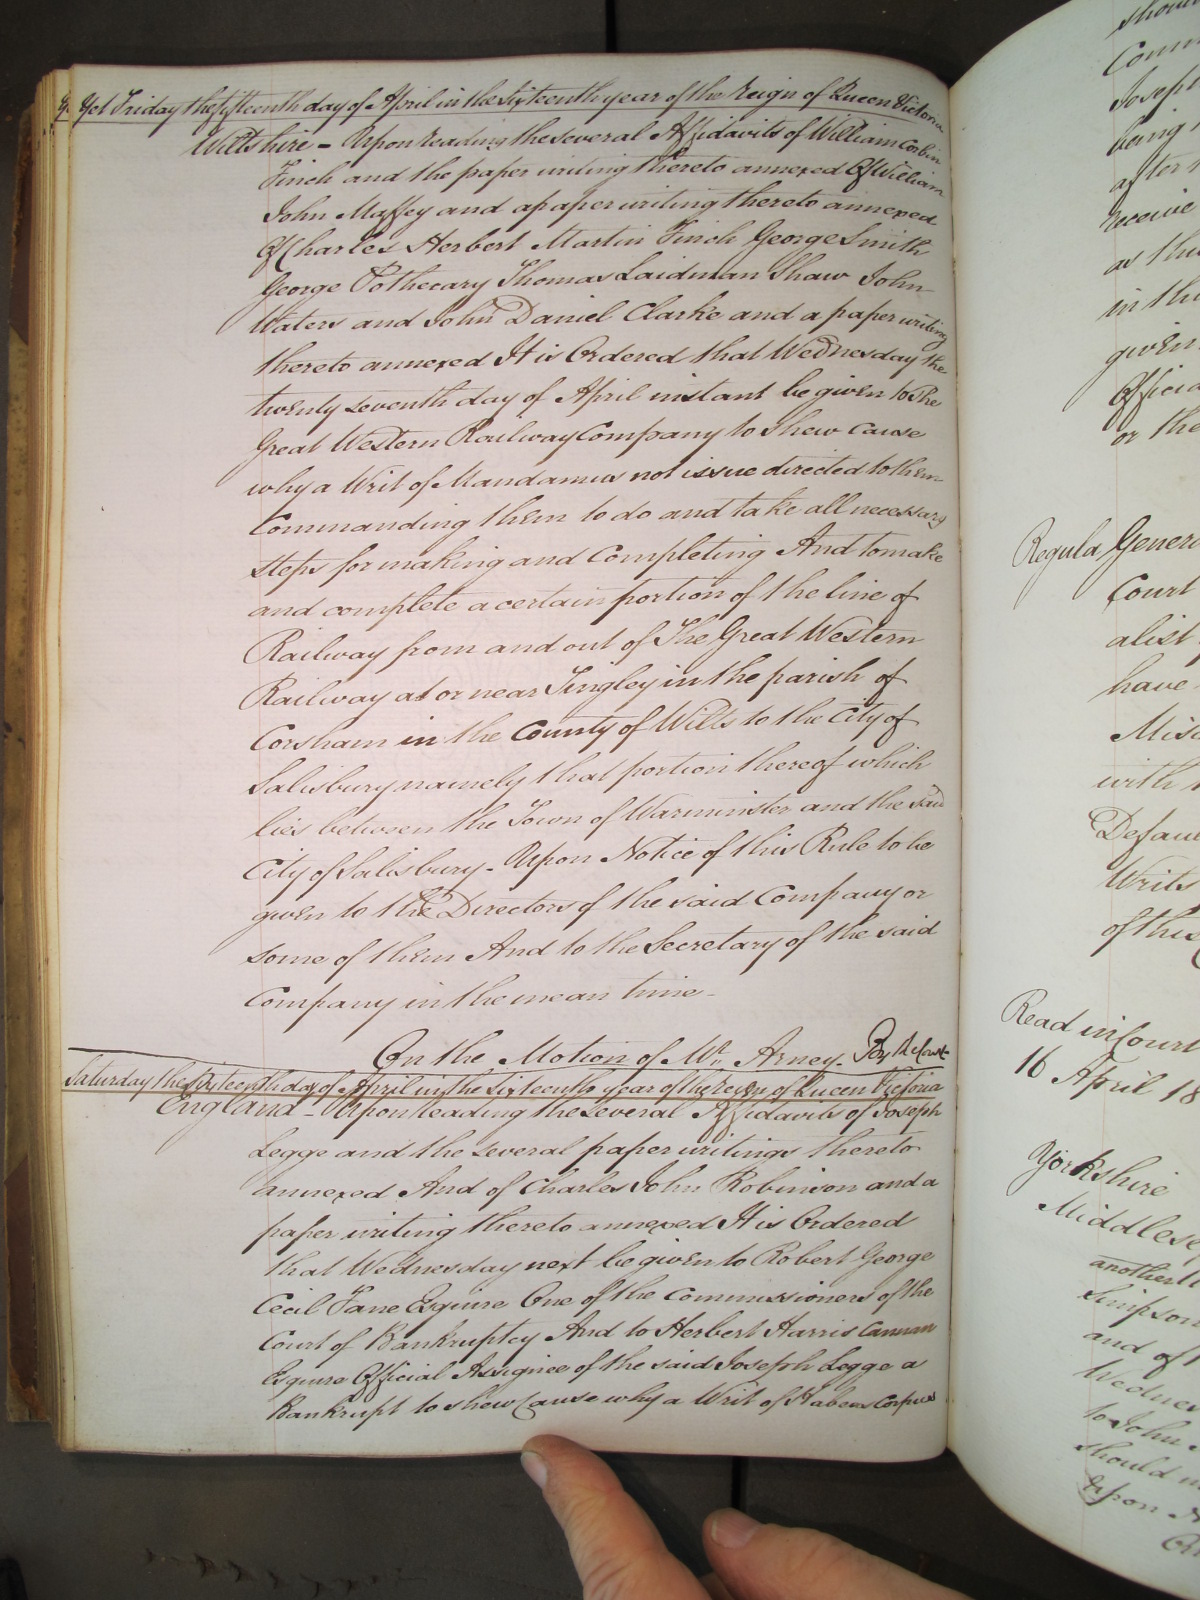 Yet Friday the fifteenth day of April in the sixteenth year of the Reign of Queen Victoria
Wiltshire - Upon reading the several Affidavits of William Corbin
Finch and the paper writing thereto annexed Of William
John Maffey and a paper writing thereto annexed
Of Charles Herbert Martin Finch George Smith
George Pothecary Thomas Laidman Shaw John
Waters and John Daniel Clarke and a paper writing
thereto annexed It is Ordered that Wednesday the
twenty seventh day of April instant be given to The
Great Western Railway Company to shew cause
why a Writ of Mandamus not issue directed to them
Commanding them to do and take all necessary
steps for making and completing And to make
and complete a certain portion of the line of
Railway from and out of The Great Western
Railway at or near Tingley in the parish of
Corsham in the County of Wilts to the City of
Salisbury namely that portion thereof which
lies between the Town of Warminster and the said
City of Salisbury - Upon Notice of this Rule to be
given to the Directors of the said Company or
some of them And to the Secretary of the said
Company in the mean time -
On the Motion of Mr. Arney. By the Court
Saturday the Sixteenth day of April in the sixteenth year of the Reign of Queen Victoria
England - Upon reading the several Affidavits of Joseph
Legge and the several paper writings thereto
annexed And of Charles John Robinson and a
paper writing thereto annexed It is Ordered
that Wednesday next be given to Robert George
Cecil Fane Esquire One of the Commissioners of the
Court of Bankruptcy And to Herbert Harris Cannan
Esquire Official Assignee of the said Joseph Legge a
Bankrupt to shew Cause why a Writ of Habeas Corpus
should
Comm
Joseph
being
after
receive
as this
in th
given
Official
or the
Regula Gener
Court
a list
have
Misc
with
Defau
Writs
of this
Read in Court
16 April 18
Yorkshire
Middlese
another
Simpson
and of
Wednes
to John
should
Upon